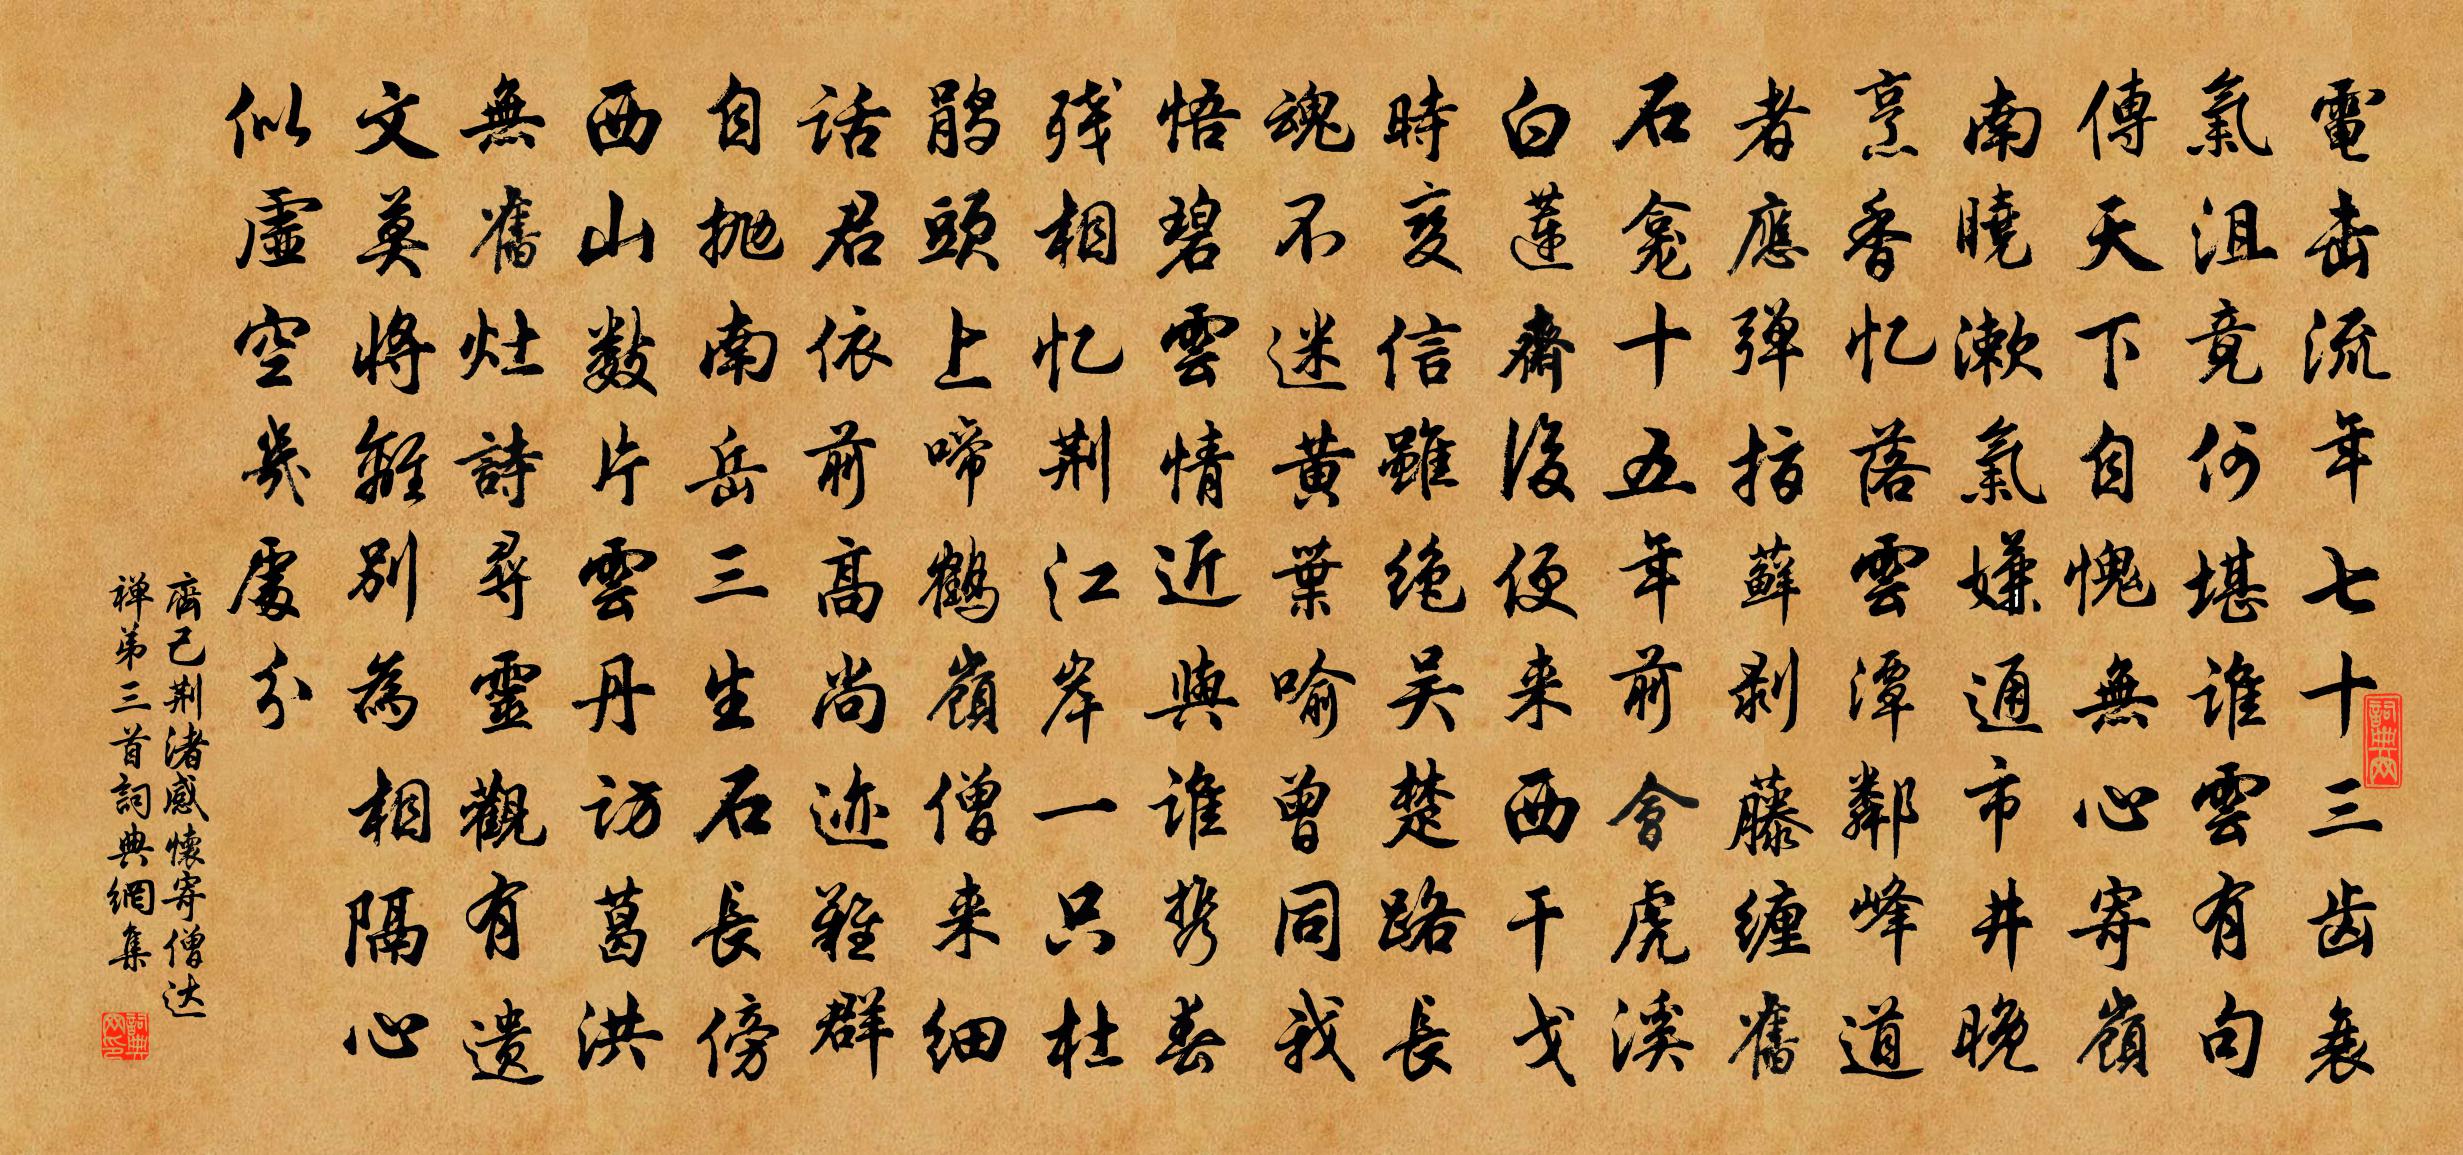 電击流年七十三齿衰
氣沮竟何堪谁雲有句
傳天下自愧無心寄嶺
南曉漱氣嫌通市井晚
烹香忆落雲潭鄰峰道
者應弹指蘚剥藤缠舊
石龛十五年前會虎溪
白莲齋後便来西干戈
時变信雖绝吴楚路長
魂不迷黄葉喻曾同我
悟碧雲情近與谁携春
残相忆荆江岸一只杜
鹃頭上啼鶴嶺僧来细
话君依前高尚迹難群
自抛南岳三生石長傍
西山数片雲丹访葛洪
無舊灶詩尋靈觀有遗
文莫将離别為相隔心
似虛空幾處分
齊己荆渚感懷寄僧达
禅弟三首詞典網集
詞典网
詞典网印